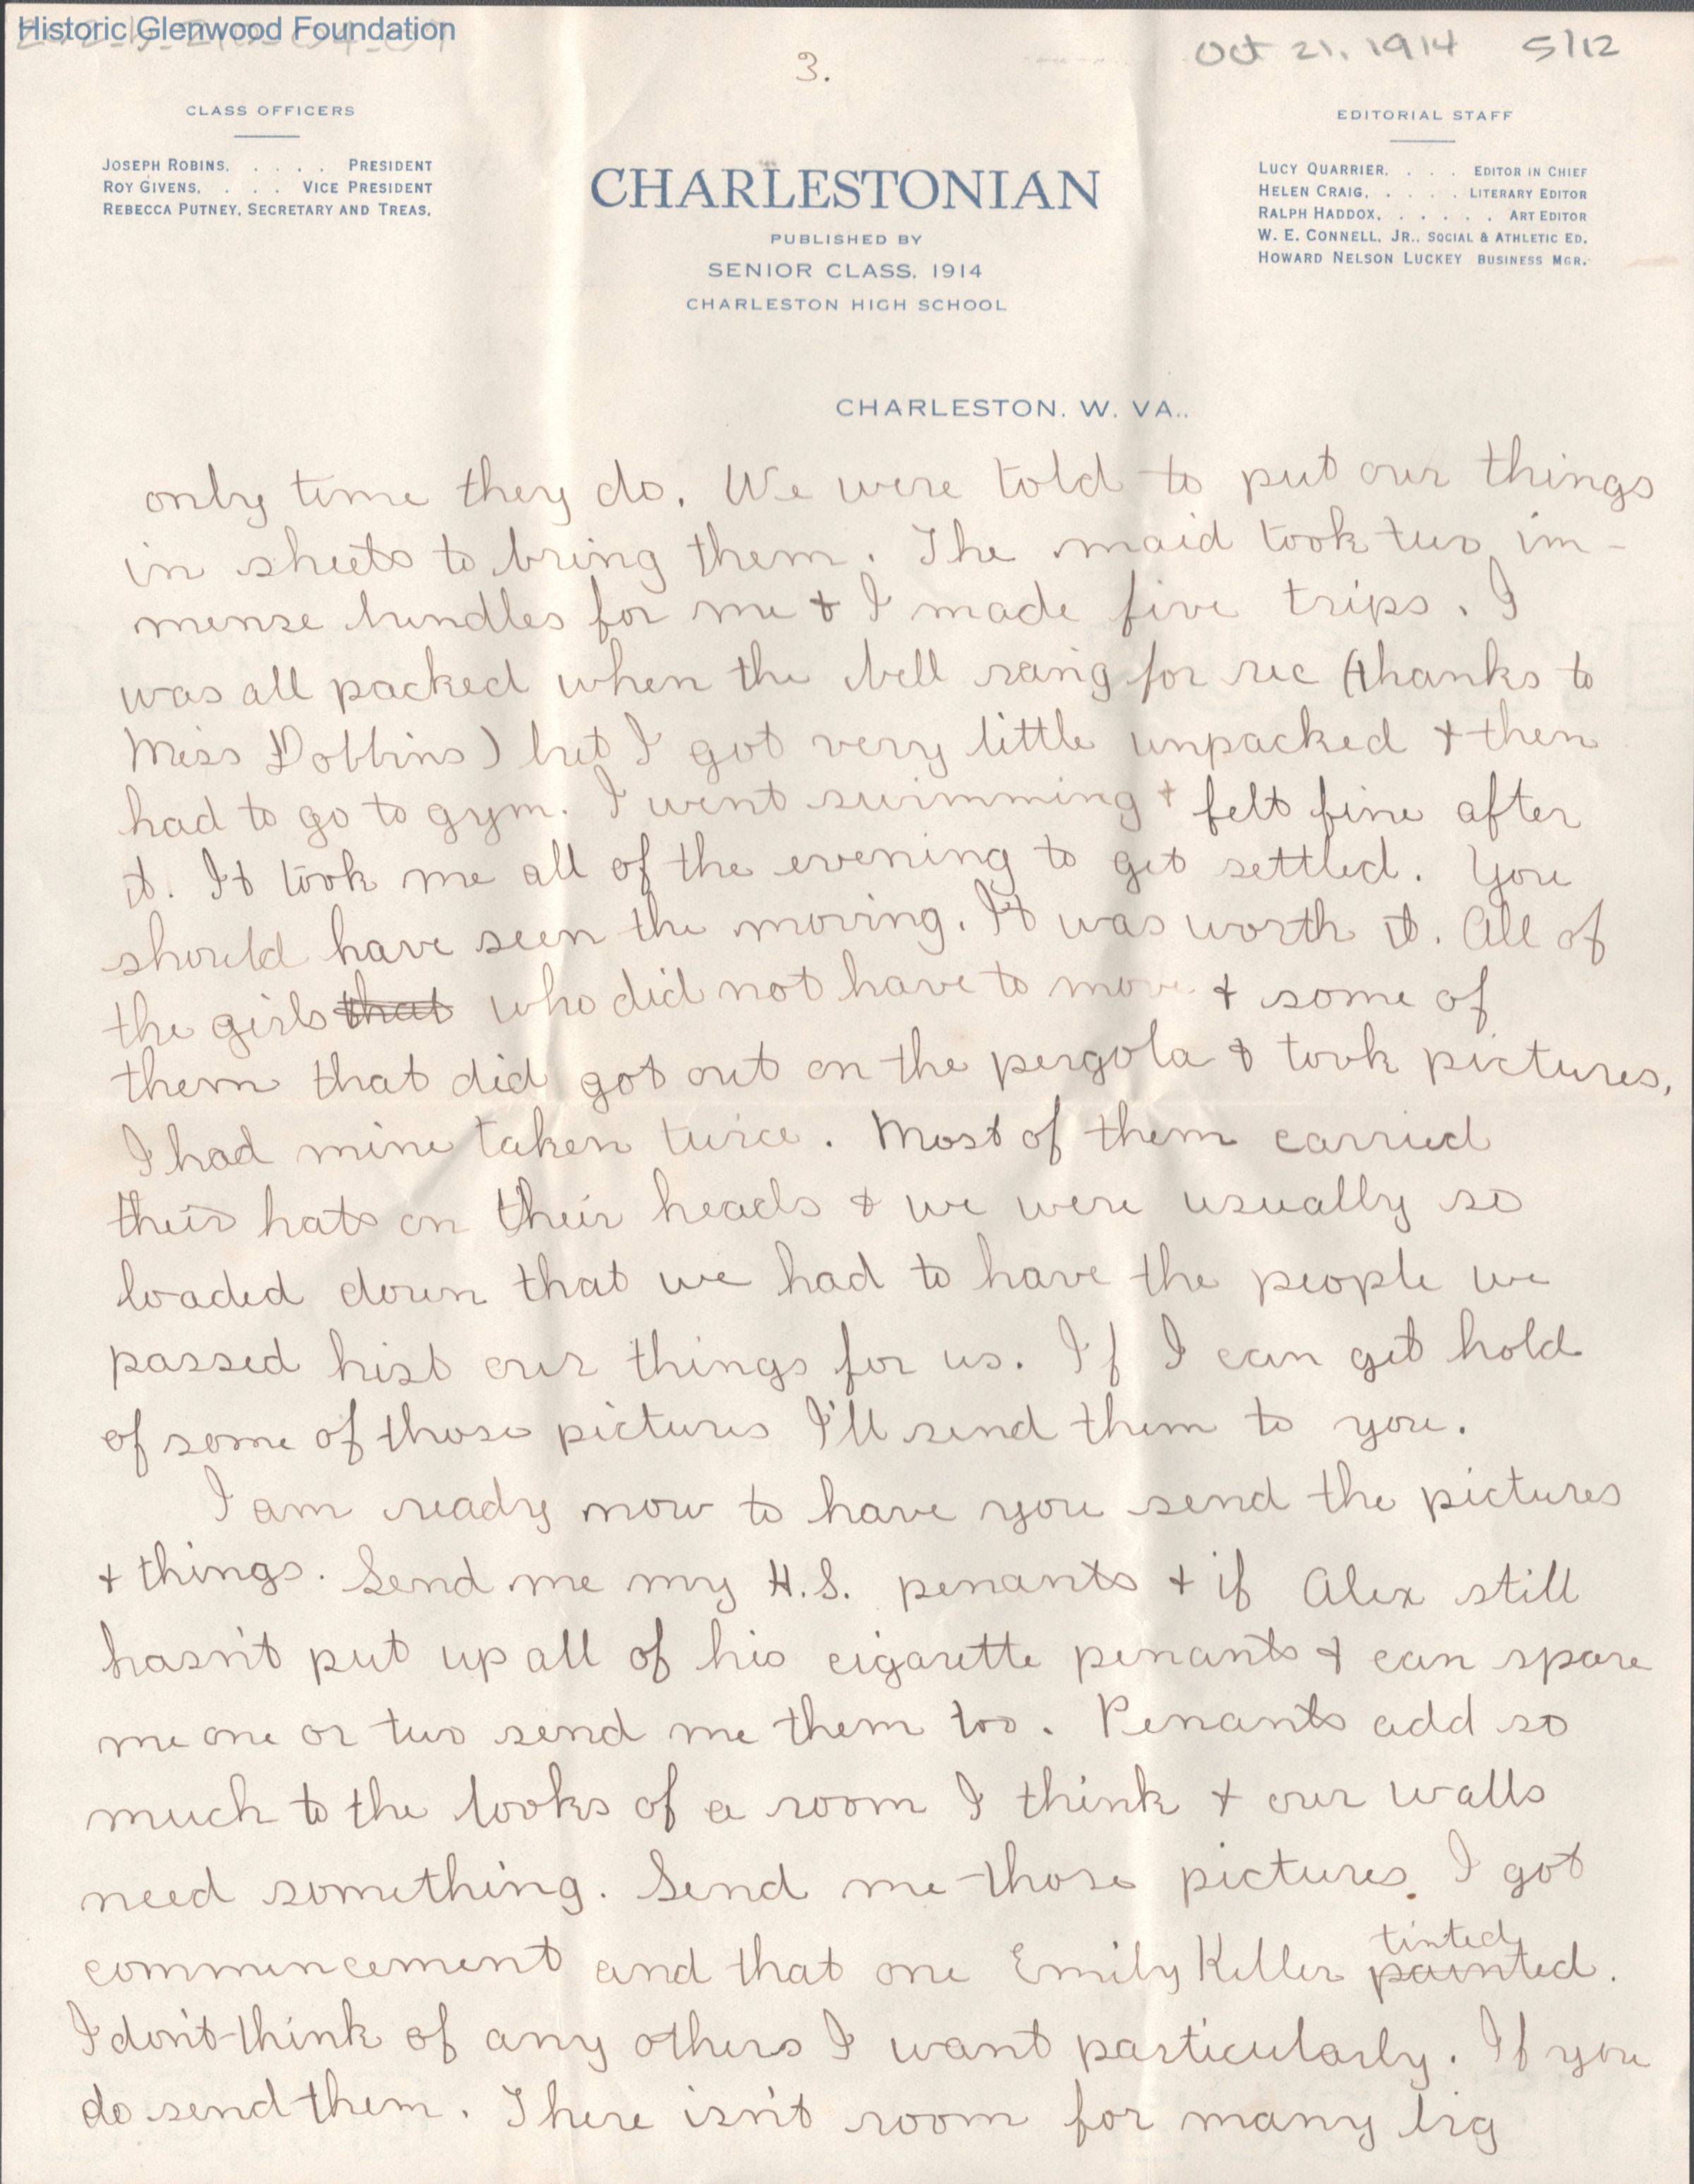 Historic Glenwood Foundation
Oct 21, 1914 5/12
3.
CLASS OFFICERS
JOSEPH ROBINS. . . . . PRESIDENT
ROY GIVENS. . . . VICE PRESIDENT
REBECCA PUTNEY, SECRETARY AND TREAS.
CHARLESTONIAN
PUBLISHED BY
SENIOR CLASS, 1914
CHARLESTON HIGH SCHOOL
EDITORIAL STAFF
LUCY QUARRIER. . . . EDITOR IN CHIEF
HELEN CRAIG. . . . . LITERARY EDITOR
RALPH HADDOX. . . . . . ART EDITOR
W. E. CONNELL, JR., SOCIAL & ATHLETIC ED.
HOWARD NELSON LUCKEY BUSINESS MGR.
CHARLESTON, W. VA.,
only time they do. We were told to put our things
in sheets to bring them. The maid took two im-
mense bundles for me & I made five trips. I
was all packed when the bell rang for rec (thanks to
Miss Dobbins) but I got very little unpacked & then
had to go to gym. I went swimming & felt fine after
it. It took me all of the evening to get settled. You
should have seen the moving. It was worth it. All of
the girls that who did not have to move & some of
them that did got out on the pergola & took pictures.
I had mine taken twice. Most of them carried
their hats on their heads & we were usually so
loaded down that we had to have the people we
passed hist our things for us. If I can get hold
of some of those pictures I'll send them to you.
I am ready now to have you send the pictures
& things. Send me my H.S. penants & if Alex still
hasn't put up all of his cigarette penants & can spare
me one or two send me them too. Penants add so
much to the looks of a room I think & our walls
need something. Send me those pictures. I got
commencement and that one Emily Keller painted.
tinted
I don't think of any others I want particularly. If you
do send them. There isn't room for many big